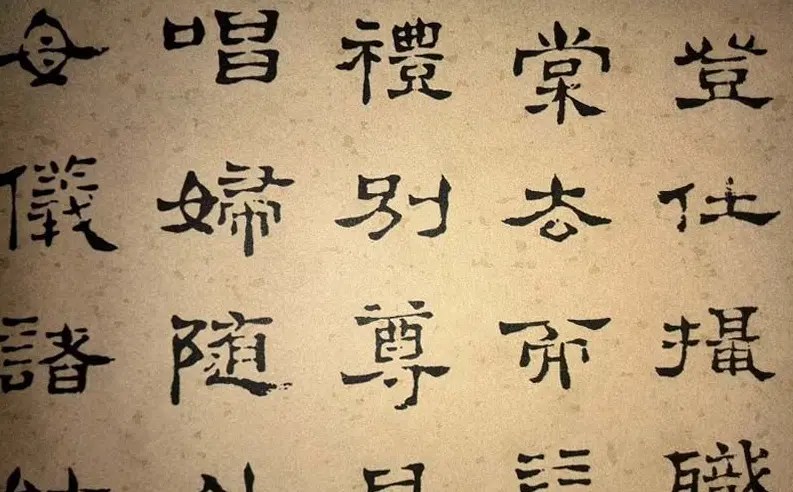 登仕攝職
棠去而
禮別尊
唱婦随
母儀諸